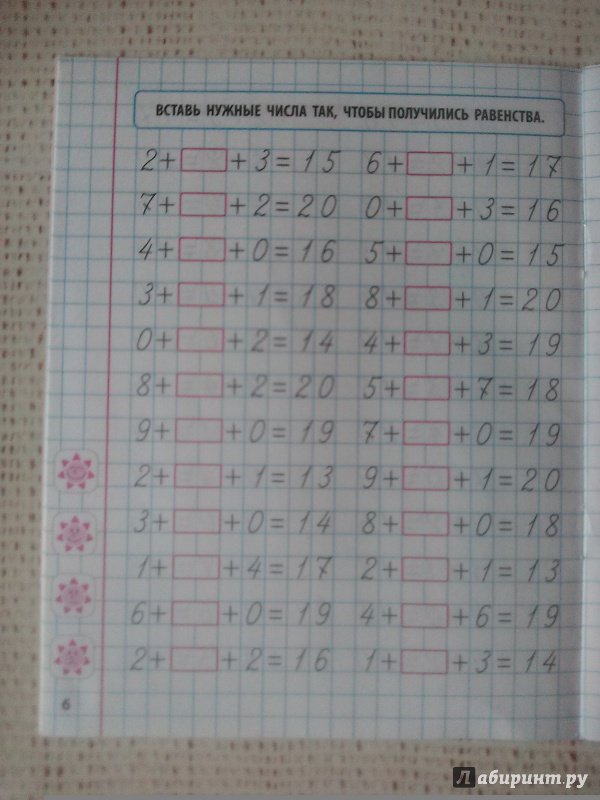 ВСТАВЬ НУЖНЫЕ ЧИСЛА ТАК, ЧТОБЫ ПОЛУЧИЛИСЬ РАВЕНСТВА.
2+□+3=15 6+□+1=17
7+□+2=20 0+□+3=16
4+□+0=16 5+□+0=15
3+□+1=18 8+□+1=20
0+□+2=14 4+□+3=19
8+□+2=20 5+□+7=18
9+□+0=19 7+□+0=19
2+□+1=13 9+□+1=20
3+□+0=14 8+□+0=18
1+□+4=17 2+□+1=13
6+□+0=19 4+□+6=19
2+□+2=16 1+□+3=14
6
Лабиринт.ру